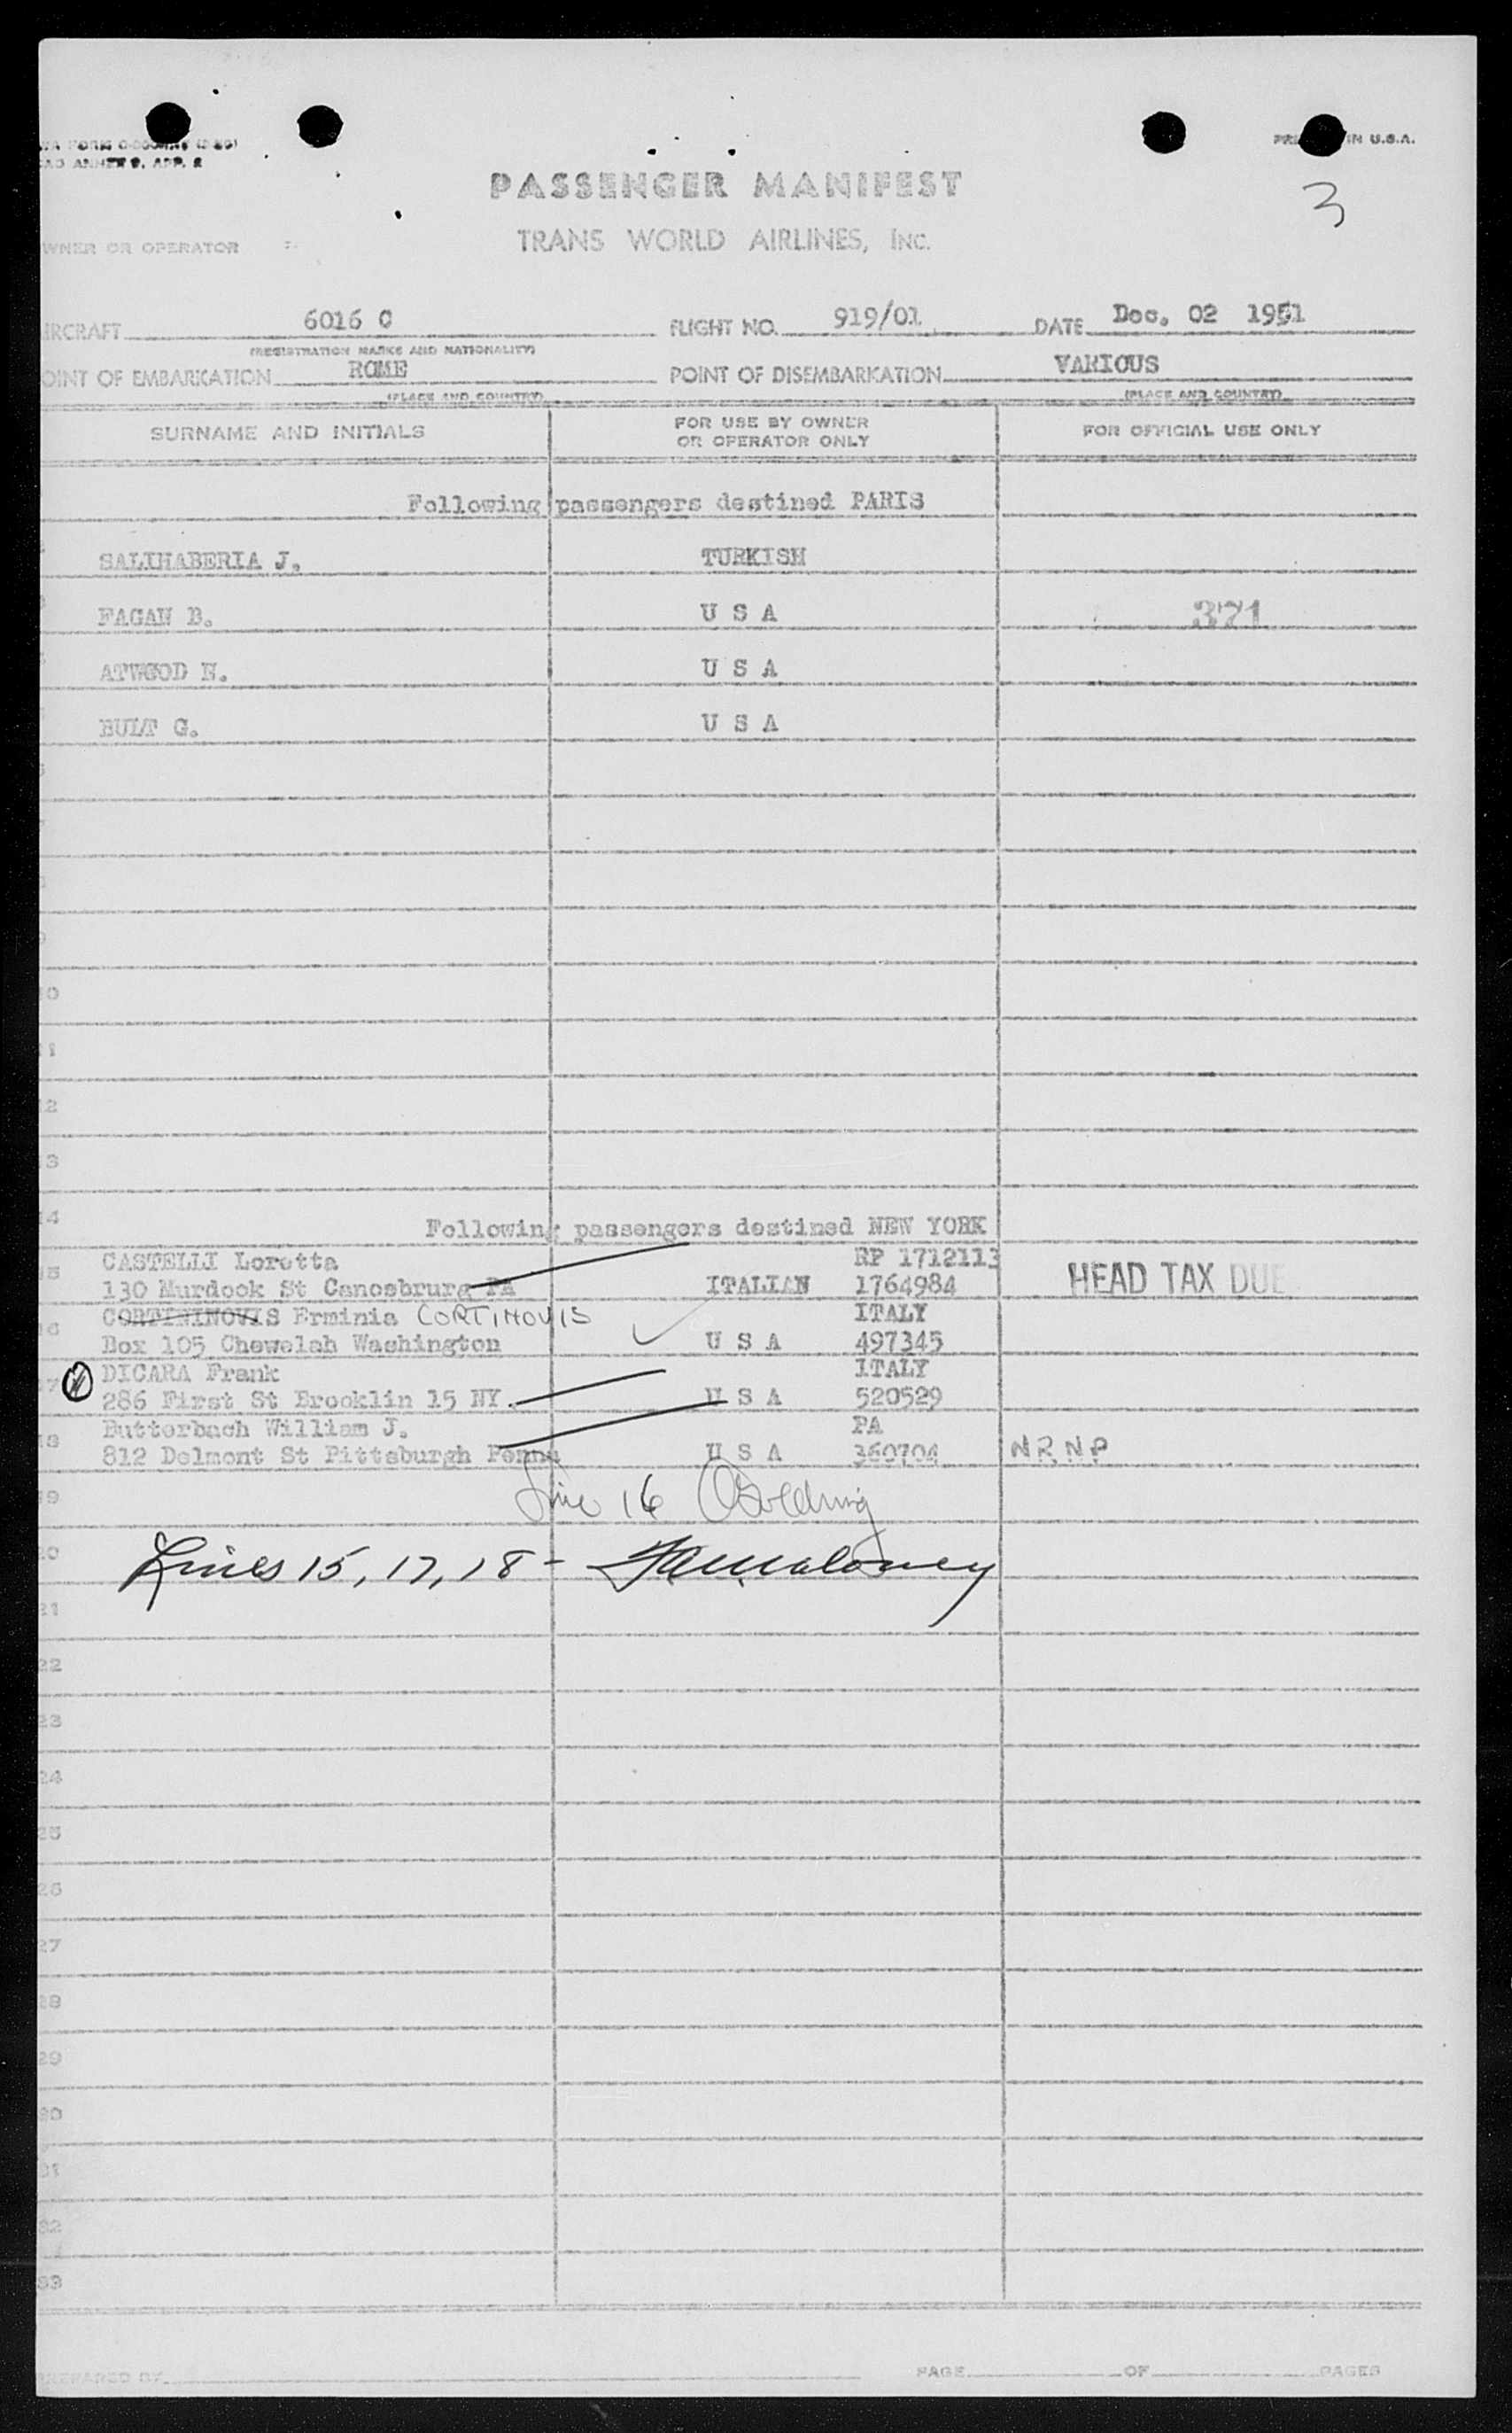 PASSENGER MANIFEST
3
TRANS WORLD AIRLINES, INC.
WNER OR OPERATOR
IRCRAFT 6016 C FLIGHT NO. 919/01 DATE Dec. 02 1951
(REGISTRATION MARKS AND NATIONALITY)
OINT OF EMBARKATION ROME POINT OF DISEMBARKATION VARIOUS
(PLACE AND COUNTRY) (PLACE AND COUNTRY)
SURNAME AND INITIALS FOR USE BY OWNER OR OPERATOR ONLY FOR OFFICIAL USE ONLY
Following passengers destined PARIS
SALIHABERIA J. TURKISH
FAGAN B. U S A 371
ATWOOD N. U S A
BULT G. U S A
10
11
12
13
14 Following passengers destined NEW YORK
CASTELLI Loretta RP 1712113
15 130 Murdock St Canosbrurg PA ITALIAN 1764984 HEAD TAX DUE
16 CORTININOVIS Erminia CORTINOVIS ITALY
Box 105 Chewelah Washington U S A 497345
17 DICARA Frank ITALY
286 First St Brooklin 15 NY. U S A 520529
Butterbach William J. PA
18 812 Delmont St Pittsburgh Penna U S A 360704 N R N P
19 Line 16
20 Lines 15, 17, 18 -
21
22
23
24
25
26
27
28
29
30
31
32
33
PREPARED BY PAGE OF PAGES